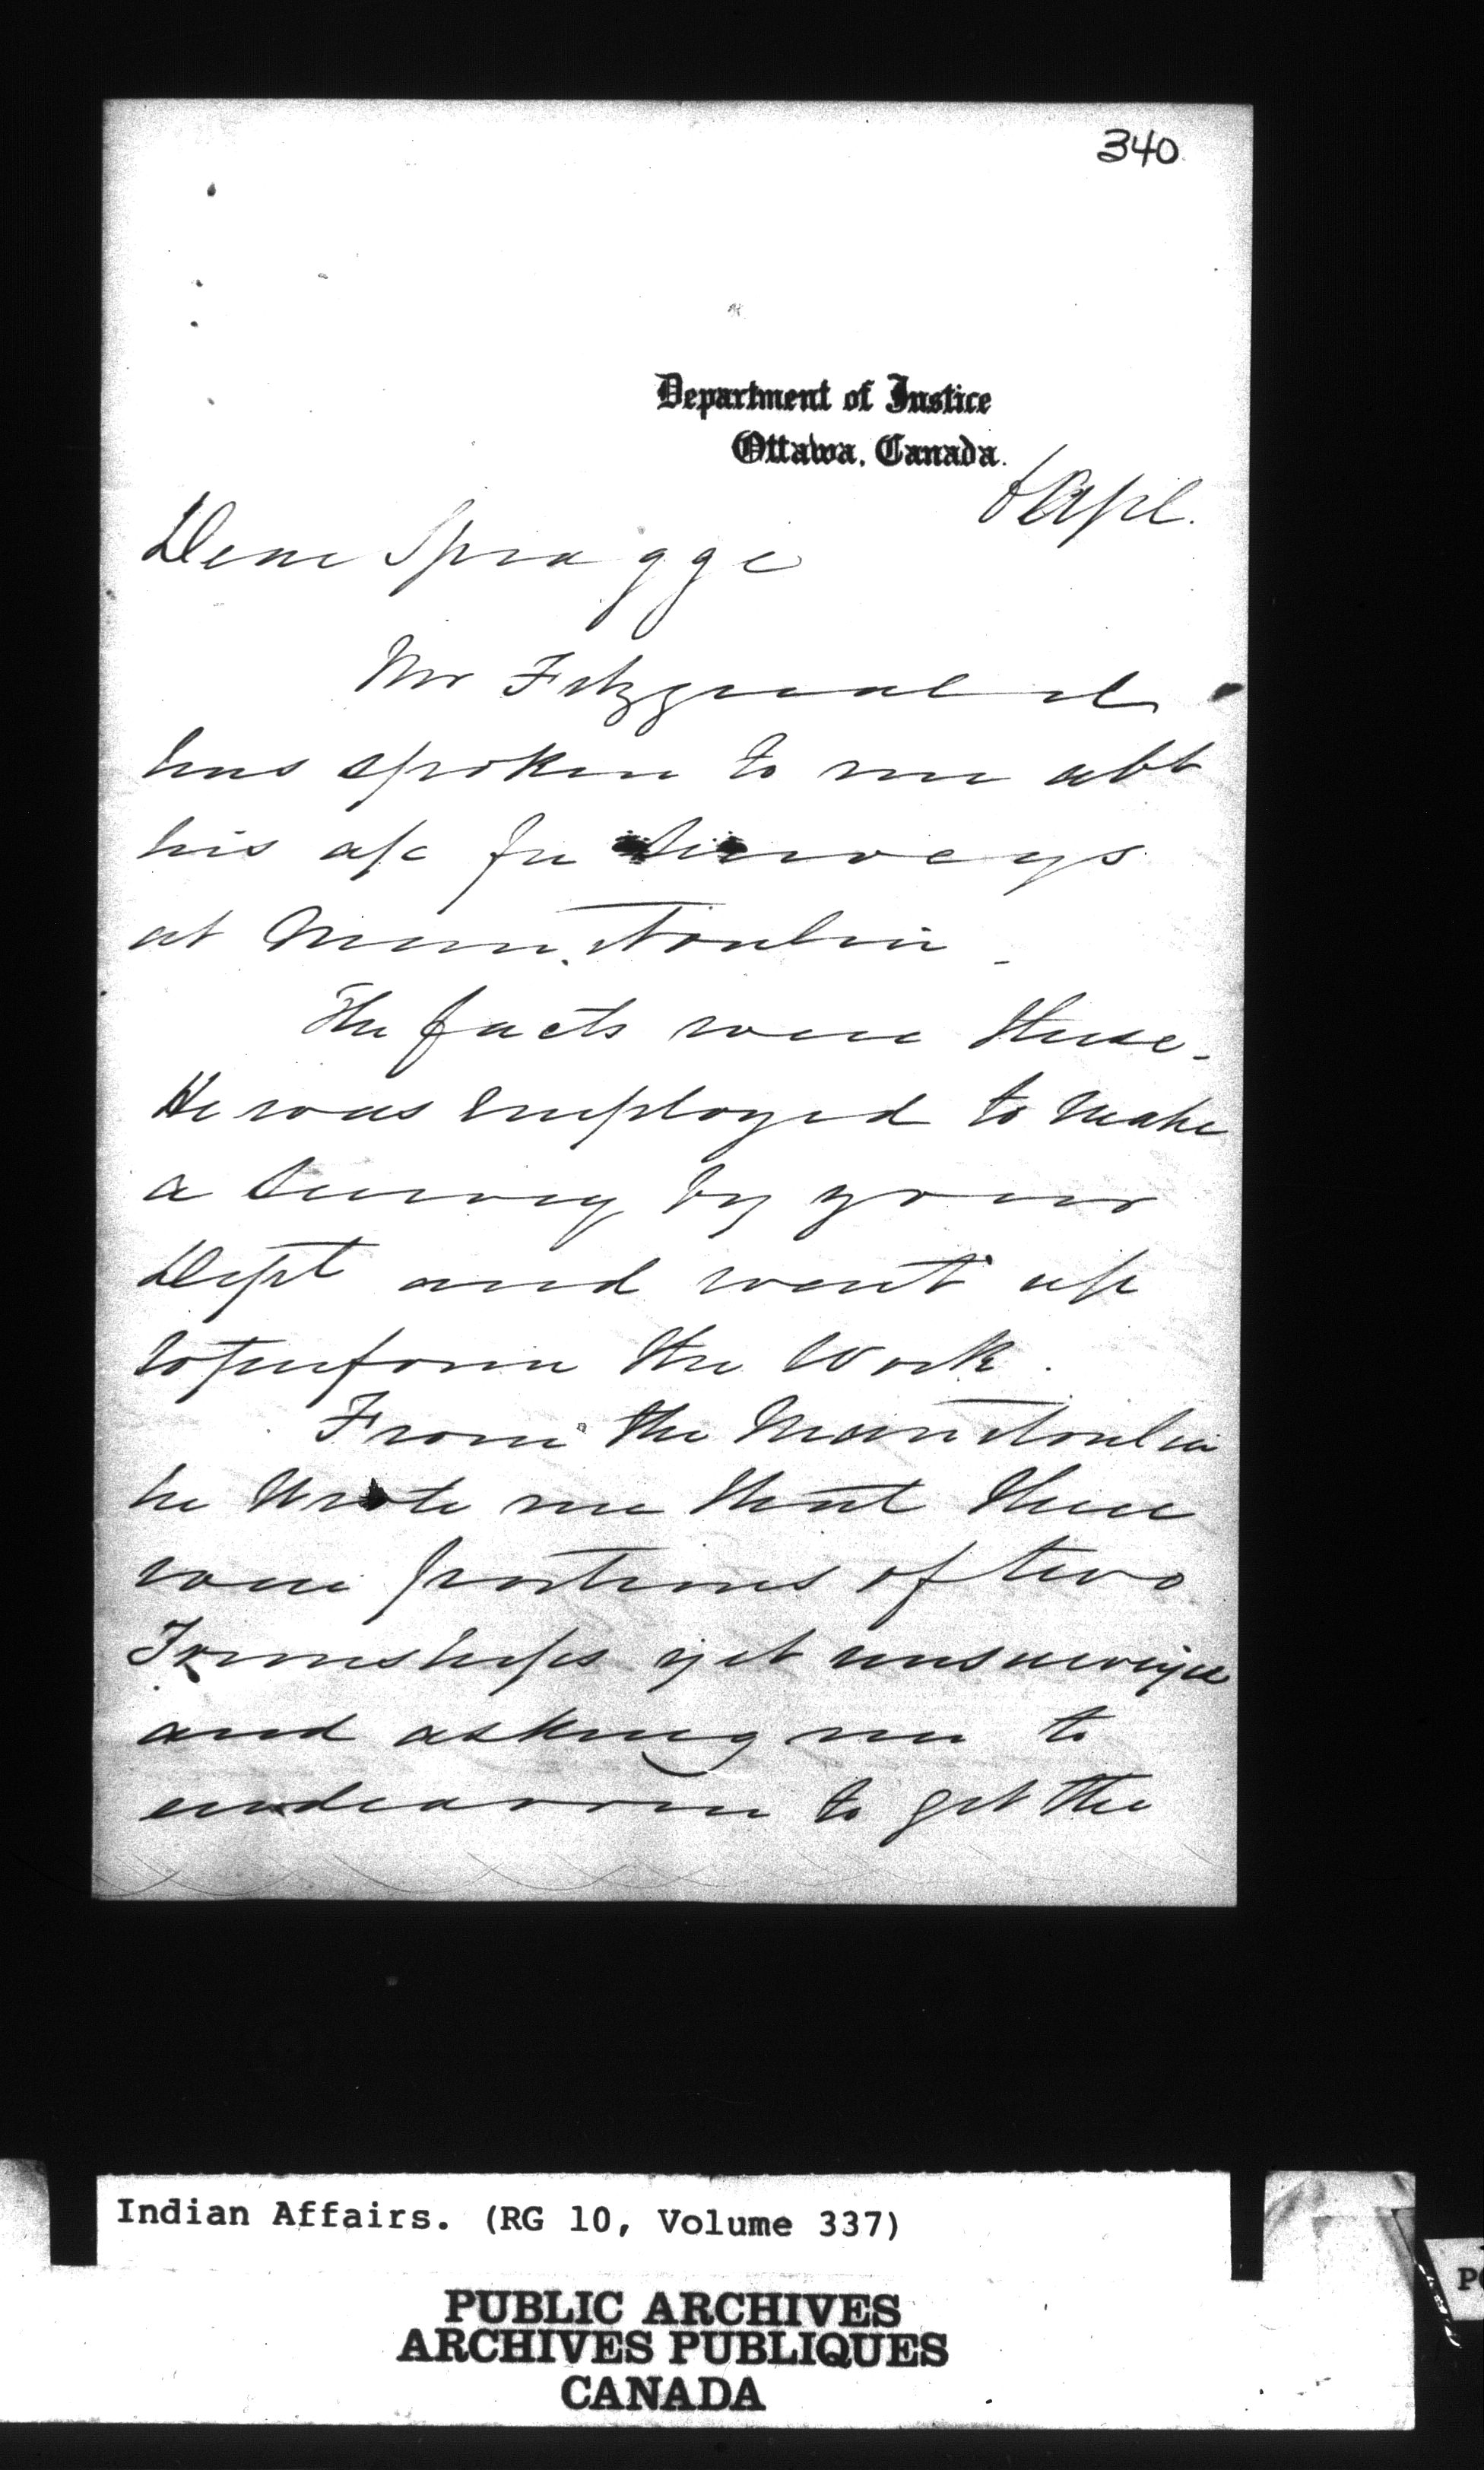 340
Department of Justice
Ottawa, Canada.
6 Apl.
Dear Spragge
Mr Fitzgerald
has spoken to me abt
his a/c for Surveys
at Manitoulin -
The facts were these -
He was employed to make
a Survey by your
Dept and went up
to perform the Work.
From the Manitoulin
he wrote me that there
were portions of two
Townships yet unsurveyed
and asking me to
endeavour to get the
Indian Affairs. (RG 10, Volume 337)
PUBLIC ARCHIVES
ARCHIVES PUBLIQUES
CANADA